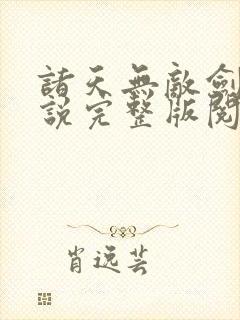 諸天無敵劍
說完整版閱
肖逸芸